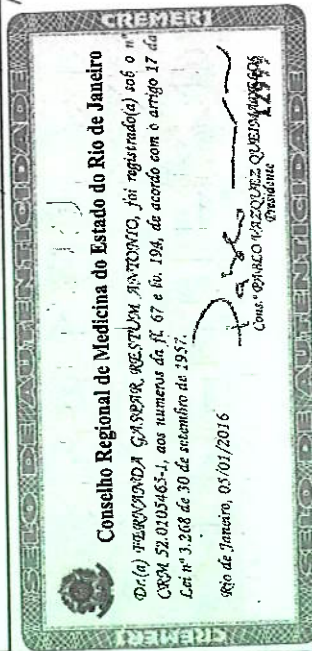 CREMERJ
SELO DE AUTENTICIDADE
Conselho Regional de Medicina do Estado do Rio de Janeiro
Dr.(a) FERNANDA GASPAR RESTUM ANTONIO, foi registrado(a) sob o nº
CRM 52.0105463-1, aos numeros da fl. 67 e lv. 194, de acordo com o artigo 17 da
Lei nº 3.268 de 30 de setembro de 1957.
Rio de Janeiro, 05/01/2016
Cons.º PABLO VAZQUEZ QUEIMADELOS
Presidente
SELO DE AUTENTICIDADE
CREMERJ